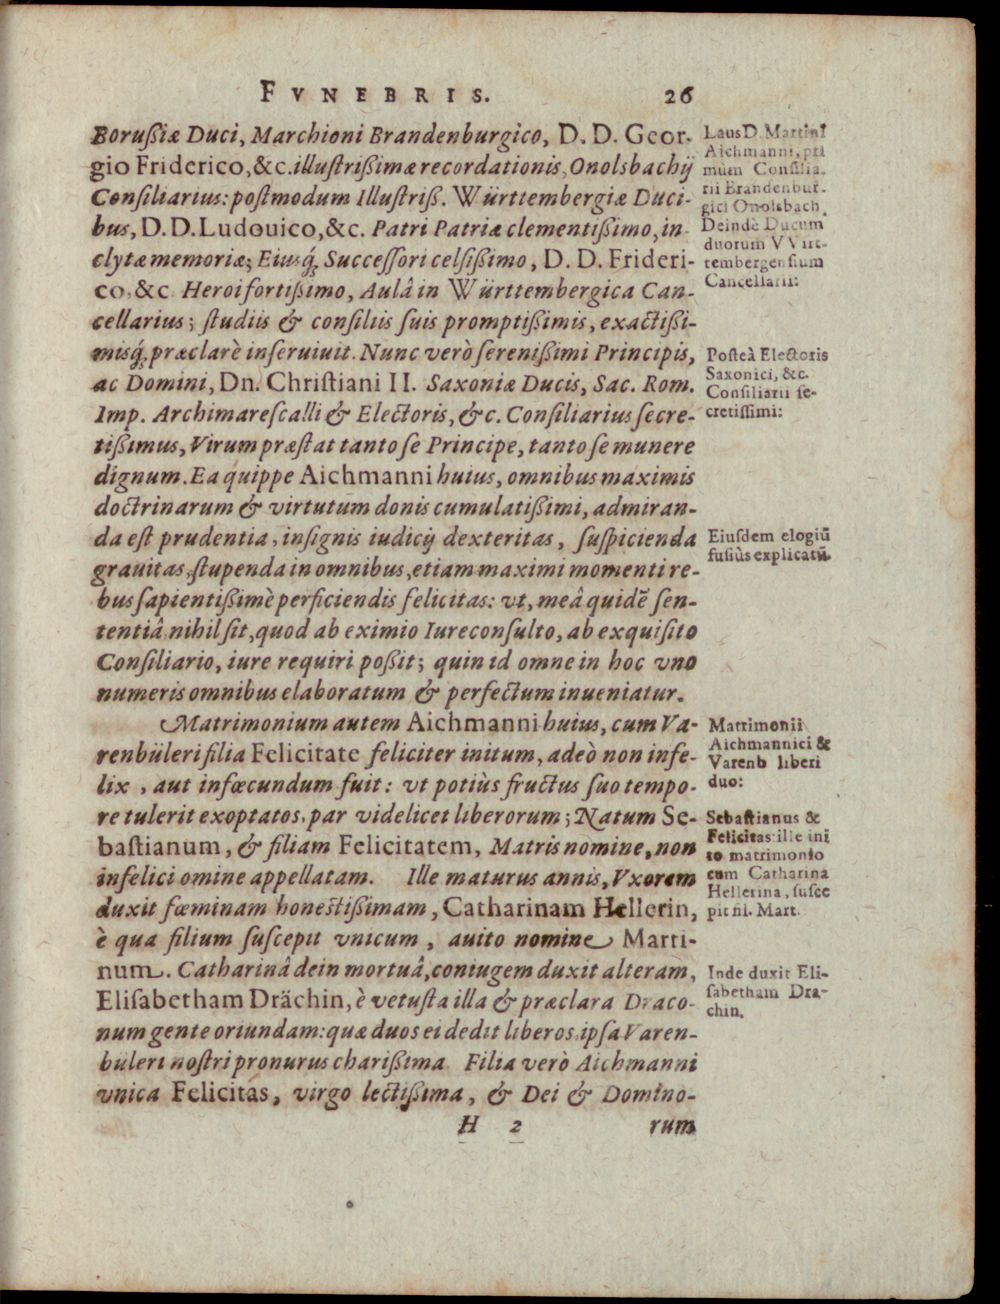 FVNEBRIS. 26
Borußiæ Duci, Marchioni Brandenburgico, D. D. Geor-
gio Friderico, &c. illuſtrißimæ recordationis, Onolsbachij
Conſiliarius: poſtmodum Illuſtriß. Württembergiæ Duci-
bus, D. D. Ludouico, &c. Patri Patriæ clementißimo, in-
clytæ memoriæ; Eiusq́; Succeſſori celſißimo, D. D. Frideri-
co, &c Heroi fortißimo, Aulâ in Württembergica Can-
cellarius; ſtudiis & conſiliis ſuis promptißimis, exactißi-
misq́; præclarè inſeruiuit. Nunc verò ſerenißimi Principis,
ac Domini, Dn. Chriſtiani II. Saxoniæ Ducis, Sac. Rom.
Imp. Archimareſcalli & Electoris, &c. Conſiliarius ſecre-
tißimus, Virum præſtat tanto ſe Principe, tanto ſe munere
dignum. Ea quippe Aichmanni huius, omnibus maximis
doctrinarum & virtutum donis cumulatißimi, admiran-
da eſt prudentia, inſignis iudicij dexteritas, ſuſpicienda
grauitas, ſtupenda in omnibus, etiam maximi momenti re-
bus ſapientißimè perficiendis felicitas: vt, meâ quidẽ ſen-
tentiâ, nihil ſit, quod ab eximio Iureconſulto, ab exquiſito
Conſiliario, iure requiri poßit; quin id omne in hoc vno
numeris omnibus elaboratum & perfectum inueniatur.
Matrimonium autem Aichmanni huius, cum Va-
renbüleri filia Felicitate feliciter initum, adeò non infe-
lix, aut infœcundum fuit: vt potiùs fructus ſuo tempo-
re tulerit exoptatos, par videlicet liberorum; Natum Se-
baſtianum, & filiam Felicitatem, Matris nomine, non
infelici omine appellatam. Ille maturus annis, Vxorem
duxit fœminam honeſtißimam, Catharinam Hellerin,
è qua filium ſuſcepit vnicum, auito nomine Marti-
num. Catharinâ dein mortuâ, coniugem duxit alteram,
Eliſabetham Drächin, è vetuſta illa & præclara Draco-
num gente oriundam: quæ duos ei dedit liberos, ipſa Varen-
buleri noſtri pronurus charißima. Filia verò Aichmanni
vnica Felicitas, virgo lectißima, & Dei & Domino-
H 2 rum
Laus D. Martini
Aichmanni, pri
mùm Conſilia-
rii Brandenbur-
gici Onolsbach.
Deindè Ducum
duorum VVirt-
tembergenſium
Cancellarii:
Poſteà Electoris
Saxonici, &c.
Conſiliarii ſe-
cretiſſimi:
Eiuſdem elogiũ
fuſiùs explicatũ.
Matrimonii
Aichmannici &
Varenb liberi
duo:
Sebaſtianus &
Felicitas: ille ini
to matrimonio
cum Catharina
Hellerina, ſuſce
pit fil. Mart.
Inde duxit Eli-
ſabetham Dra-
chin.